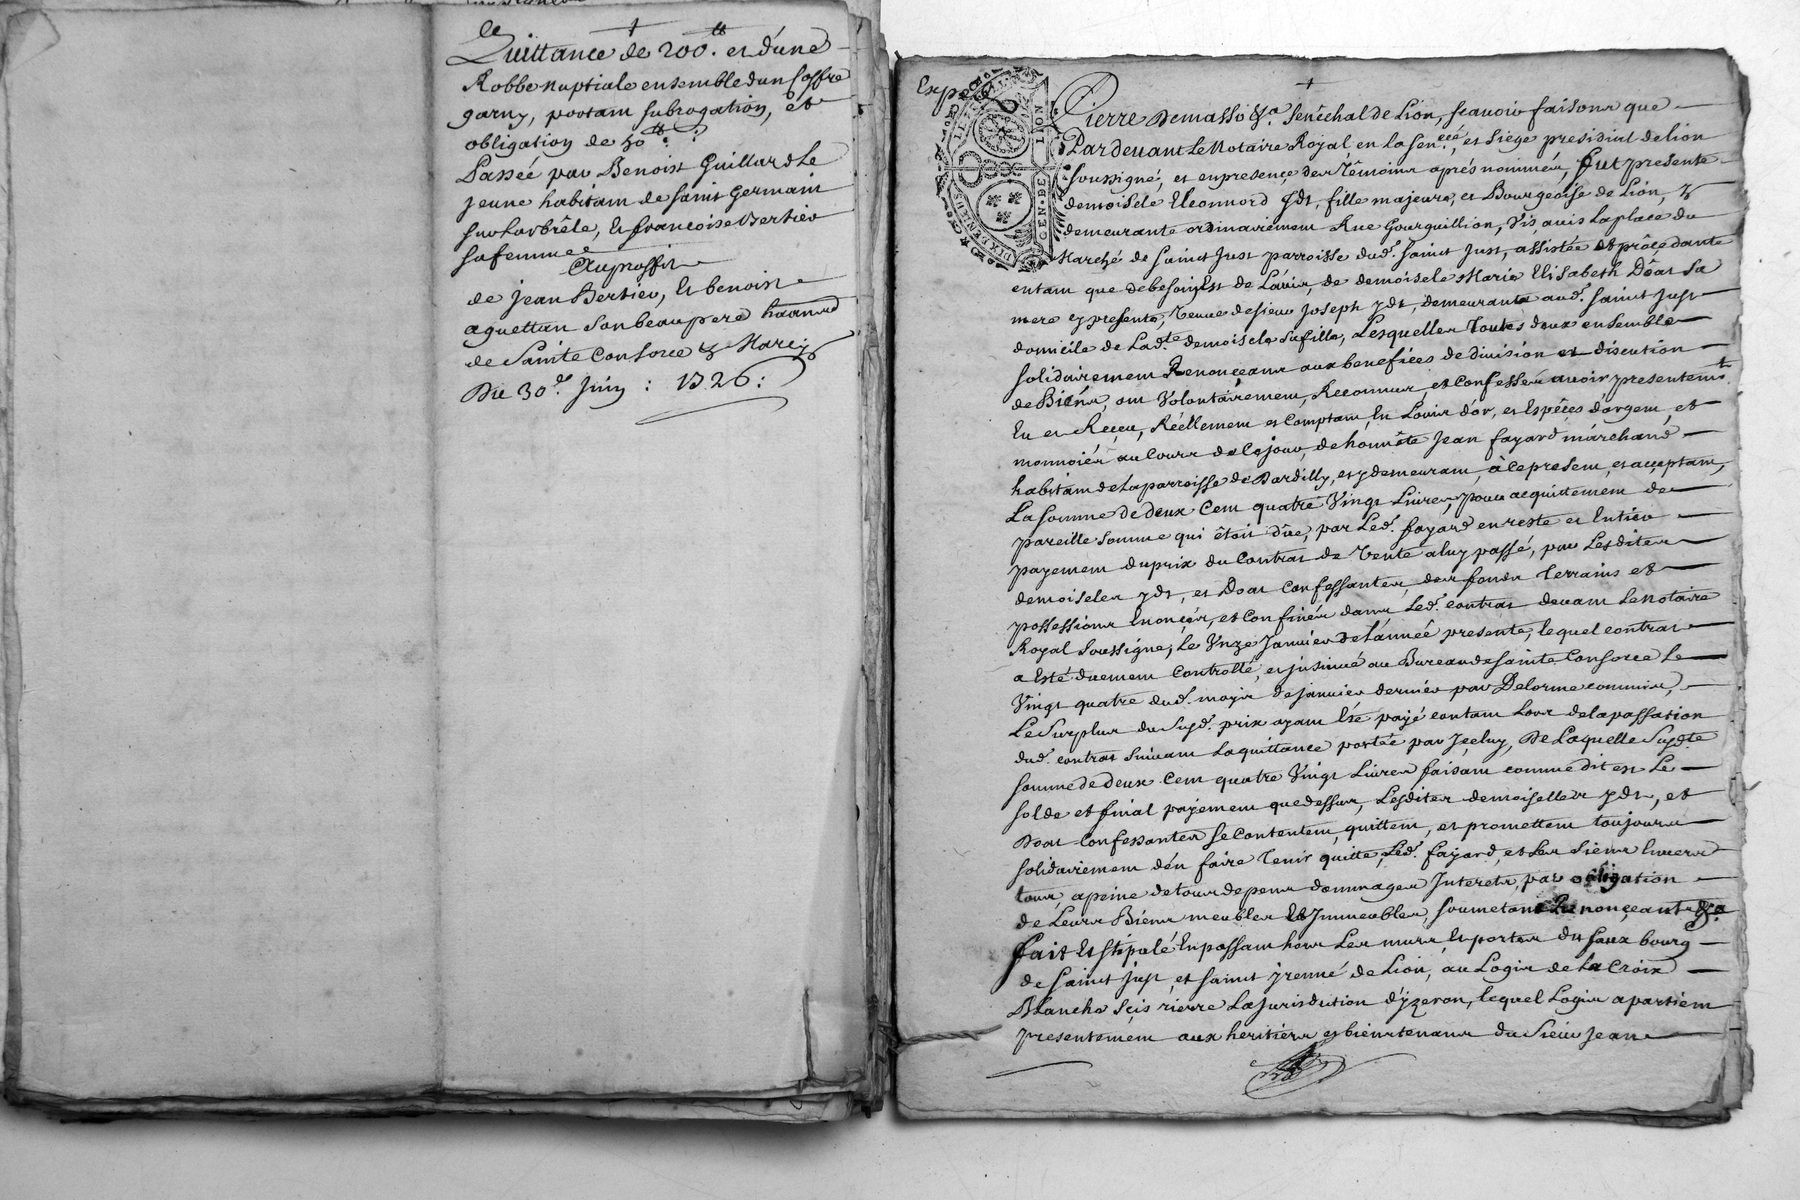 Quittance de 200.tt et d'une
Robbe nuptiale ensemble dun Coffre
garny, portam subrogation, et
obligation de 50.tt
Passée par Benoist Guillard Le
jeune habitam de saint Germain
sur Larbrêle, Et francoise Bertier
sa femme
Au proffit
de jean Bertier, Et benoist
aguettan son beaupere
de Sainte Consorce & Marcy
Du 30.e Juin : 1726 :
Exp.
GEN · DE LION
Pierre Demasso &.a Sénéchal de Lion, scavoir faisons que
Pardevant Le Notaire Royal en La Sen.ccé, et siege presidial de Lion
soussigné, et en presence des Têmoins aprés nommés, fut presente
demoisele Eleonnord ydt, fille majeure, et Bourgeoise de Lion, y
demeurante ordinairement Rue Gourguillion, Vis, auis Laplace du
Marché de sainct Just parroisse dud.t sainct Just, assistée et procedante
entam que de besoin Est de L'auis, de demoisele Marie Elisabeth Doat sa
mere y presente, veuve de sieur Joseph ydt, demeurante aud.t sainct Just
domicile de Lad.te demoisele sa fille, Lesquelles Toutes deux ensemble
solidairement Renonceans aux benefices de division et discution
de Biens, ont Volontairement, Reconnus et Confessés auoir presentem.t
Eu et Receu, Réellement et Comptam, En Louis d'or, et Espéces d'argent, et
monnoiés au Cours de Ce jour, de honnête Jean fayard marchand
habitam de La parroisse de Dardilly, et y demeuram, à ce present, et acceptam,
La somme de deux Cent quatre Vingt Livres, pour acquittement de
pareille somme qui êtoit düe, par Led.t fayard en reste et Entier
payement du prix du Contrat de Vente a luy passé, par Lesdites
demoiseles ydt, et Doat Confessantes, des fonds Terrains et
possessions Enoncés, et Confinés dans Led.t contrat devam Le Notaire
Royal Soussigné, Le Vnze Janvier de L'année presente, lequel contrat
a Esté duement Controllé, et jnsinué au Bureau de sainte Consorce Le
Vingt quatre dud.t moyis de janvier dernier par Delorme commis,
Le Surplus du Susd.t prix ayant Eté payé contam Lors de la passation
dud.t contrat suivant La quittance portée par Jceluy, De Laquelle Susd.te
somme de deux Cent quatre Vingt Livres faisam comme dit est Le
solde et final payement que dessus, Lesdites demoiselles ydt, et
Doat Confessantes Se Contentem, quittem, et promettem toujours
solidairement d'en faire Tenir quitte, Led.t fayard, et Les Siens Envers
tous, apeine de tous depens dommages Interets, par obligation
de Leurs Biens meubles Et Jmmeubles, soumetant Renonceant &.a
fait Et Stipulé En passam hors Les murs, Et portes du faux bourg
de sainct Just, et sainct jrenné de Lion, au Logis de La Croix
Blanche Scis rierre La Jurisdition d'yzeron, lequel Logis apartiem
presentement aux heritiers et bientenans du Sieur Jean